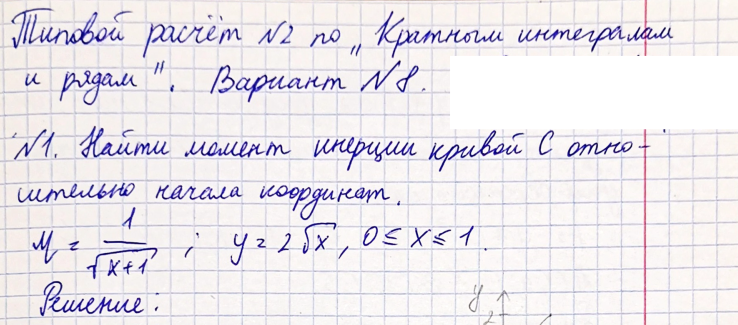 Типовой расчёт №2 по „Кратным интегралам
и рядам". Вариант №8.
№1. Найти момент инерции кривой C отно-
сительно начала координат.
M = 1/√(x+1) ; y = 2√x, 0 ≤ x ≤ 1.
Решение:
y
2